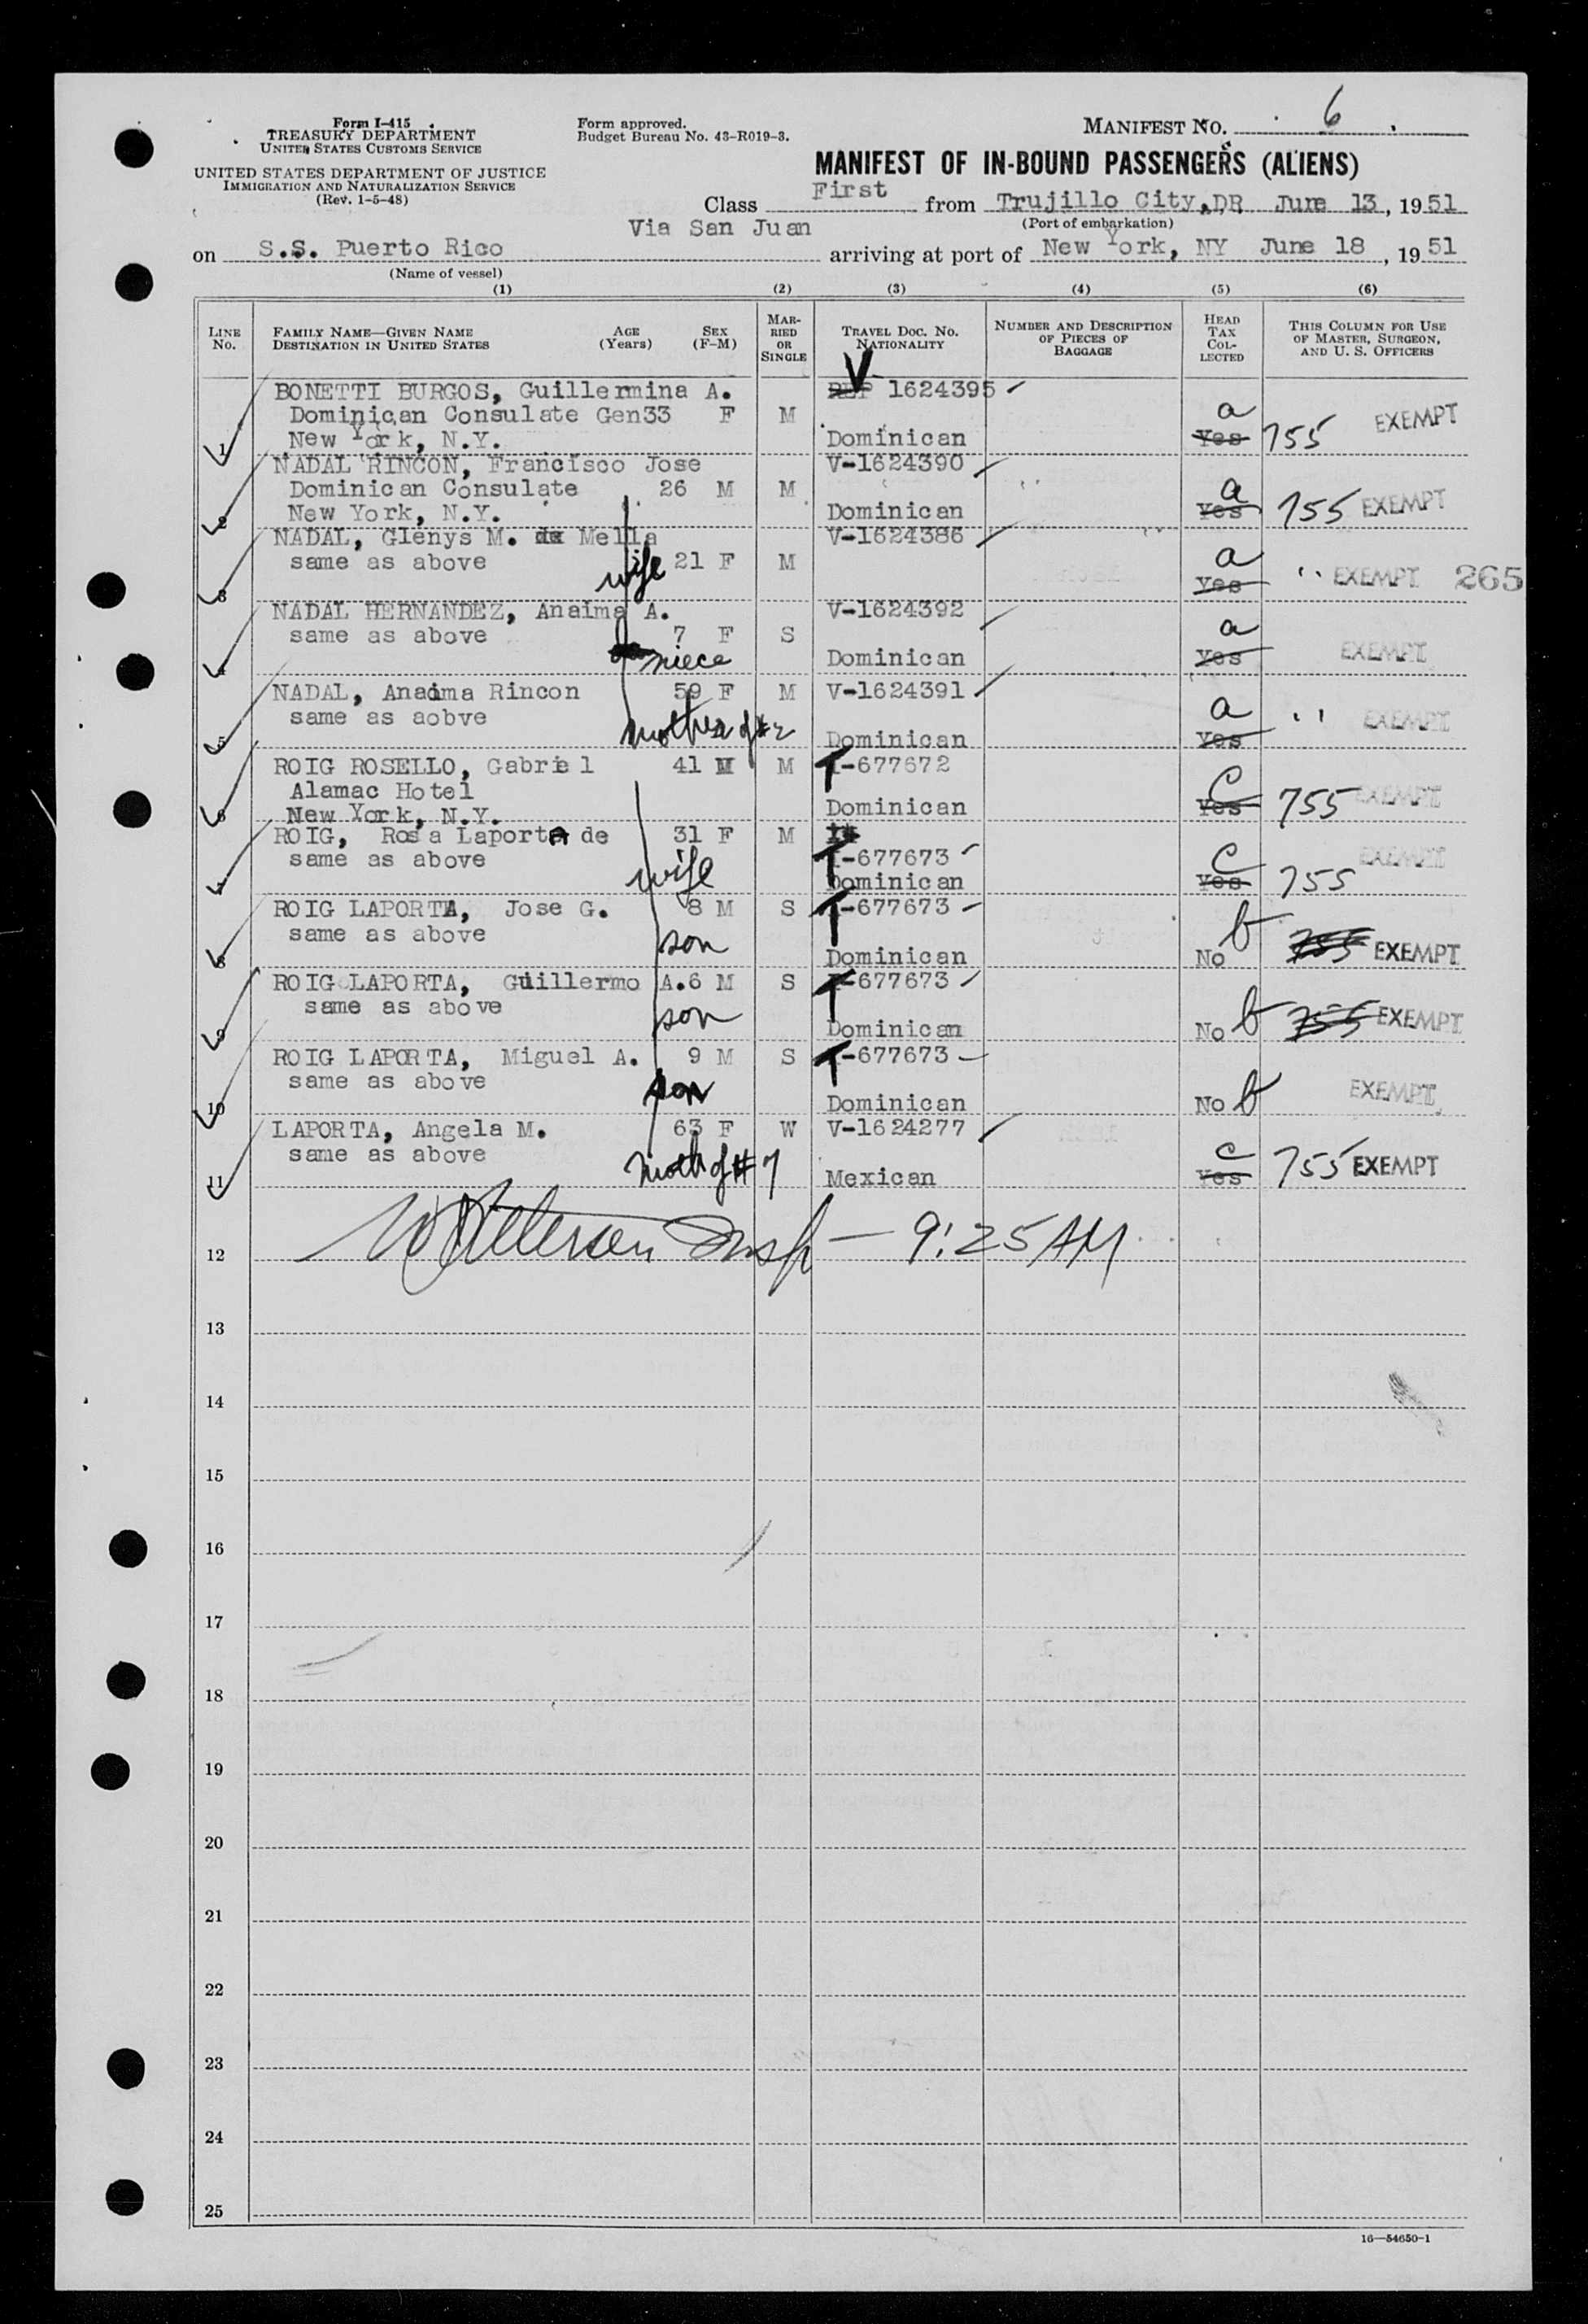 Form I-415
TREASURY DEPARTMENT
UNITED STATES CUSTOMS SERVICE
UNITED STATES DEPARTMENT OF JUSTICE
IMMIGRATION AND NATURALIZATION SERVICE
(Rev. 1-5-48)
Form approved.
Budget Bureau No. 43-R019-3.
MANIFEST NO. 6
MANIFEST OF IN-BOUND PASSENGERS (ALIENS)
Class First from Trujillo City, DR June 13, 1951
Via San Juan (Port of embarkation)
on S.S. Puerto Rico arriving at port of New York, NY June 18, 1951
(Name of vessel)
(1) (2) (3) (4) (5) (6)
LINE NO. FAMILY NAME—GIVEN NAME DESTINATION IN UNITED STATES AGE (Years) SEX (F-M) MARRIED OR SINGLE TRAVEL DOC. NO. NATIONALITY NUMBER AND DESCRIPTION OF PIECES OF BAGGAGE HEAD TAX COLLECTED THIS COLUMN FOR USE OF MASTER, SURGEON, AND U. S. OFFICERS
BONETTI BURGOS, Guillermina A. V 1624395
Dominican Consulate Gen 33 F M a
1 New York, N.Y. Dominican Yes 755 EXEMPT
NADAL RINCON, Francisco Jose V-1624390
Dominican Consulate 26 M M a
2 New York, N.Y. Dominican Yes 755 EXEMPT
NADAL, Glenys M. de Mella V-1624386
same as above wife 21 F M a
3 Yes " EXEMPT 265
NADAL HERNANDEZ, Anaima A. V-1624392
same as above 7 F S a
4 niece Dominican Yes EXEMPT
NADAL, Anaima Rincon 59 F M V-1624391
same as aobve a " EXEMPT
5 mother of #2 Dominican Yes
ROIG ROSELLO, Gabriel 41 M M T-677672
Alamac Hotel C
6 New York, N.Y. Dominican Yes 755 EXEMPT
ROIG, Rosa Laporta de 31 F M
same as above T-677673 C EXEMPT
7 wife Dominican Yes 755
ROIG LAPORTA, Jose G. 8 M S T-677673
same as above son b
8 Dominican No 755 EXEMPT
ROIG LAPORTA, Guillermo A. 6 M S T-677673
same as above son
9 Dominican No b 755 EXEMPT
ROIG LAPORTA, Miguel A. 9 M S T-677673
same as above son
10 Dominican No b EXEMPT
LAPORTA, Angela M. 63 F W V-1624277
same as above c
11 moth of #7 Mexican Yes 755 EXEMPT
12 Insp — 9:25 AM
13
14
15
16
17
18
19
20
21
22
23
24
25
16—54650-1